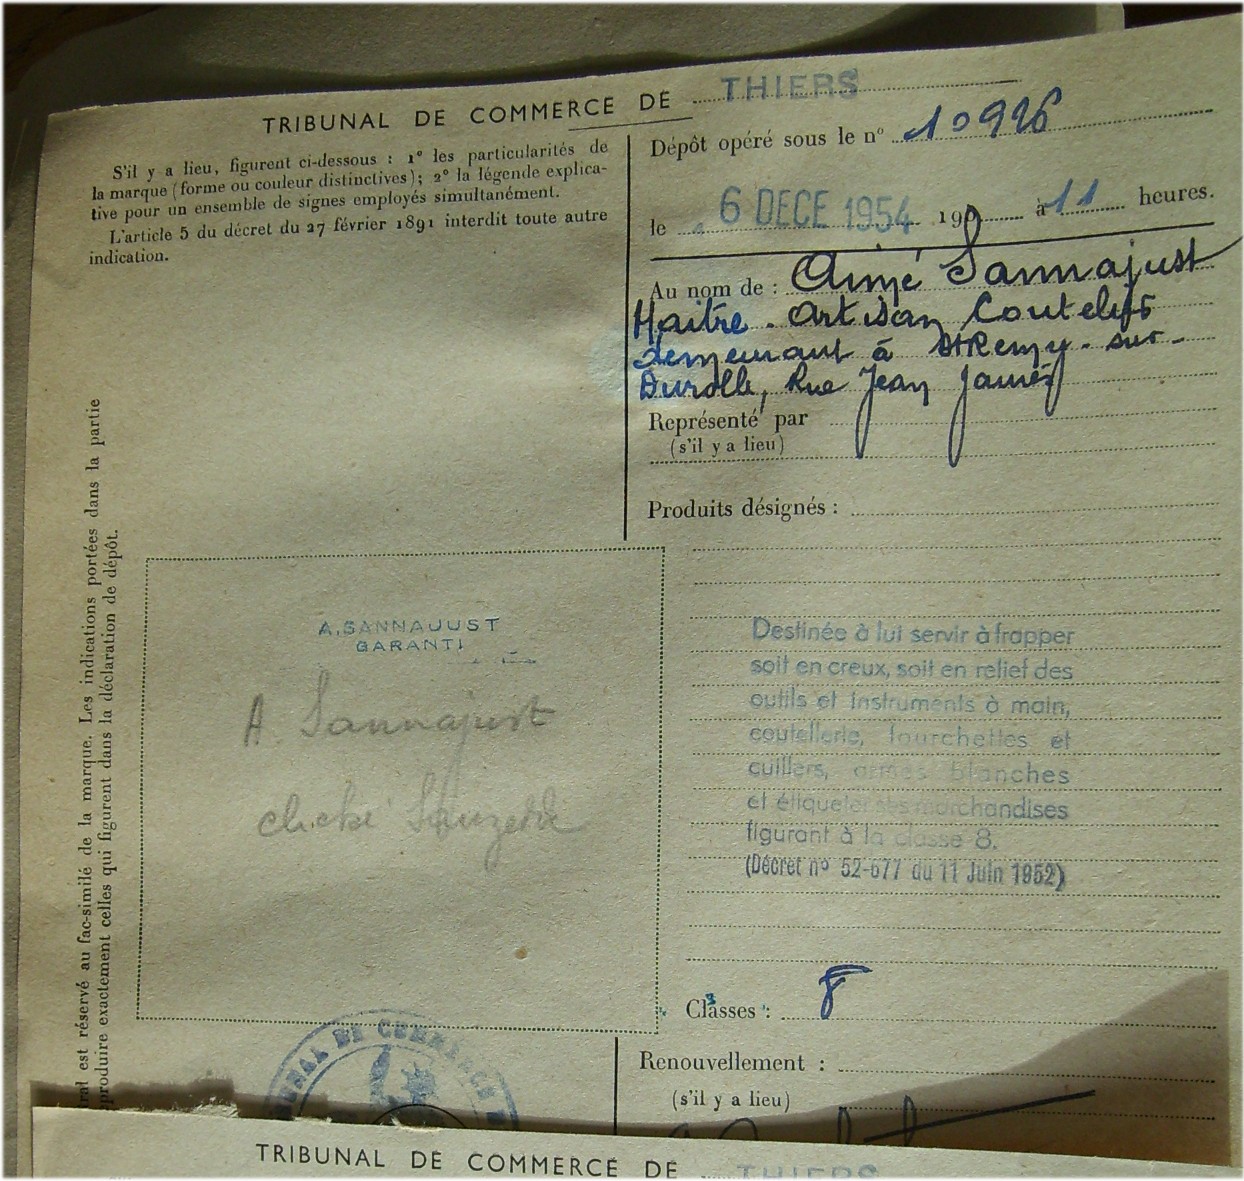 TRIBUNAL DE COMMERCE DE THIERS
S'il y a lieu, figurent ci-dessous : 1° les particularités de
la marque (forme ou couleur distinctives); 2° la légende explica-
tive pour un ensemble de signes employés simultanément.
L'article 5 du décret du 27 février 1891 interdit toute autre
indication.
Dépôt opéré sous le n° 10926
le 6 DECE 1954 19 à 11 heures.
Au nom de : Aimé Sannajust
Maitre. Artisan Coutelier
demeurant à St Remy-sur-
Durolle, Rue Jean Jaurès
Représenté par
(s'il y a lieu)
Produits désignés :
ral est réservé au fac-similé de la marque. Les indications portées dans la partie
produire exactement celles qui figurent dans la déclaration de dépôt.
A. SANNAJUST
GARANTI
A. Sannajust
cliché
Destinée à lui servir à frapper
soit en creux, soit en relief des
outils et Instruments à main,
coutellerie, fourchettes et
cuillers, armes blanches
et étiqueter ses marchandises
figurant à la classe 8.
(Décret n° 52-677 du 11 Juin 1952)
Classes : 8
Renouvellement :
(s'il y a lieu)
TRIBUNAL DE COMMERCE
TRIBUNAL DE COMMERCE DE THIERS